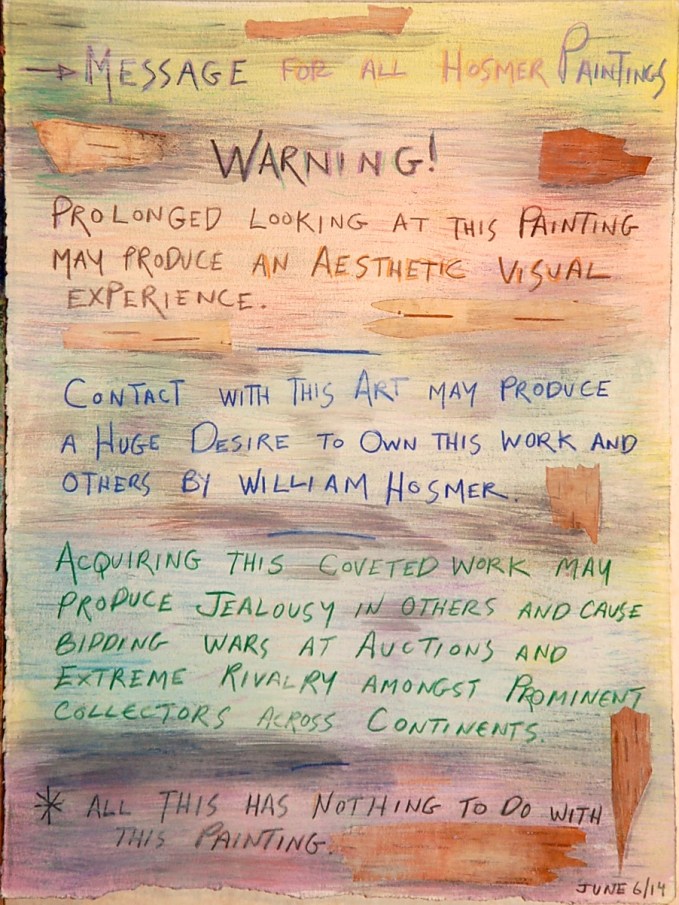 → MESSAGE FOR ALL HOSMER PAINTINGS
WARNING!
PROLONGED LOOKING AT THIS PAINTING
MAY PRODUCE AN AESTHETIC VISUAL
EXPERIENCE.
CONTACT WITH THIS ART MAY PRODUCE
A HUGE DESIRE TO OWN THIS WORK AND
OTHERS BY WILLIAM HOSMER.
ACQUIRING THIS COVETED WORK MAY
PRODUCE JEALOUSY IN OTHERS AND CAUSE
BIDDING WARS AT AUCTIONS AND
EXTREME RIVALRY AMONGST PROMINENT
COLLECTORS ACROSS CONTINENTS.
* ALL THIS HAS NOTHING TO DO WITH
THIS PAINTING.
JUNE 6/14